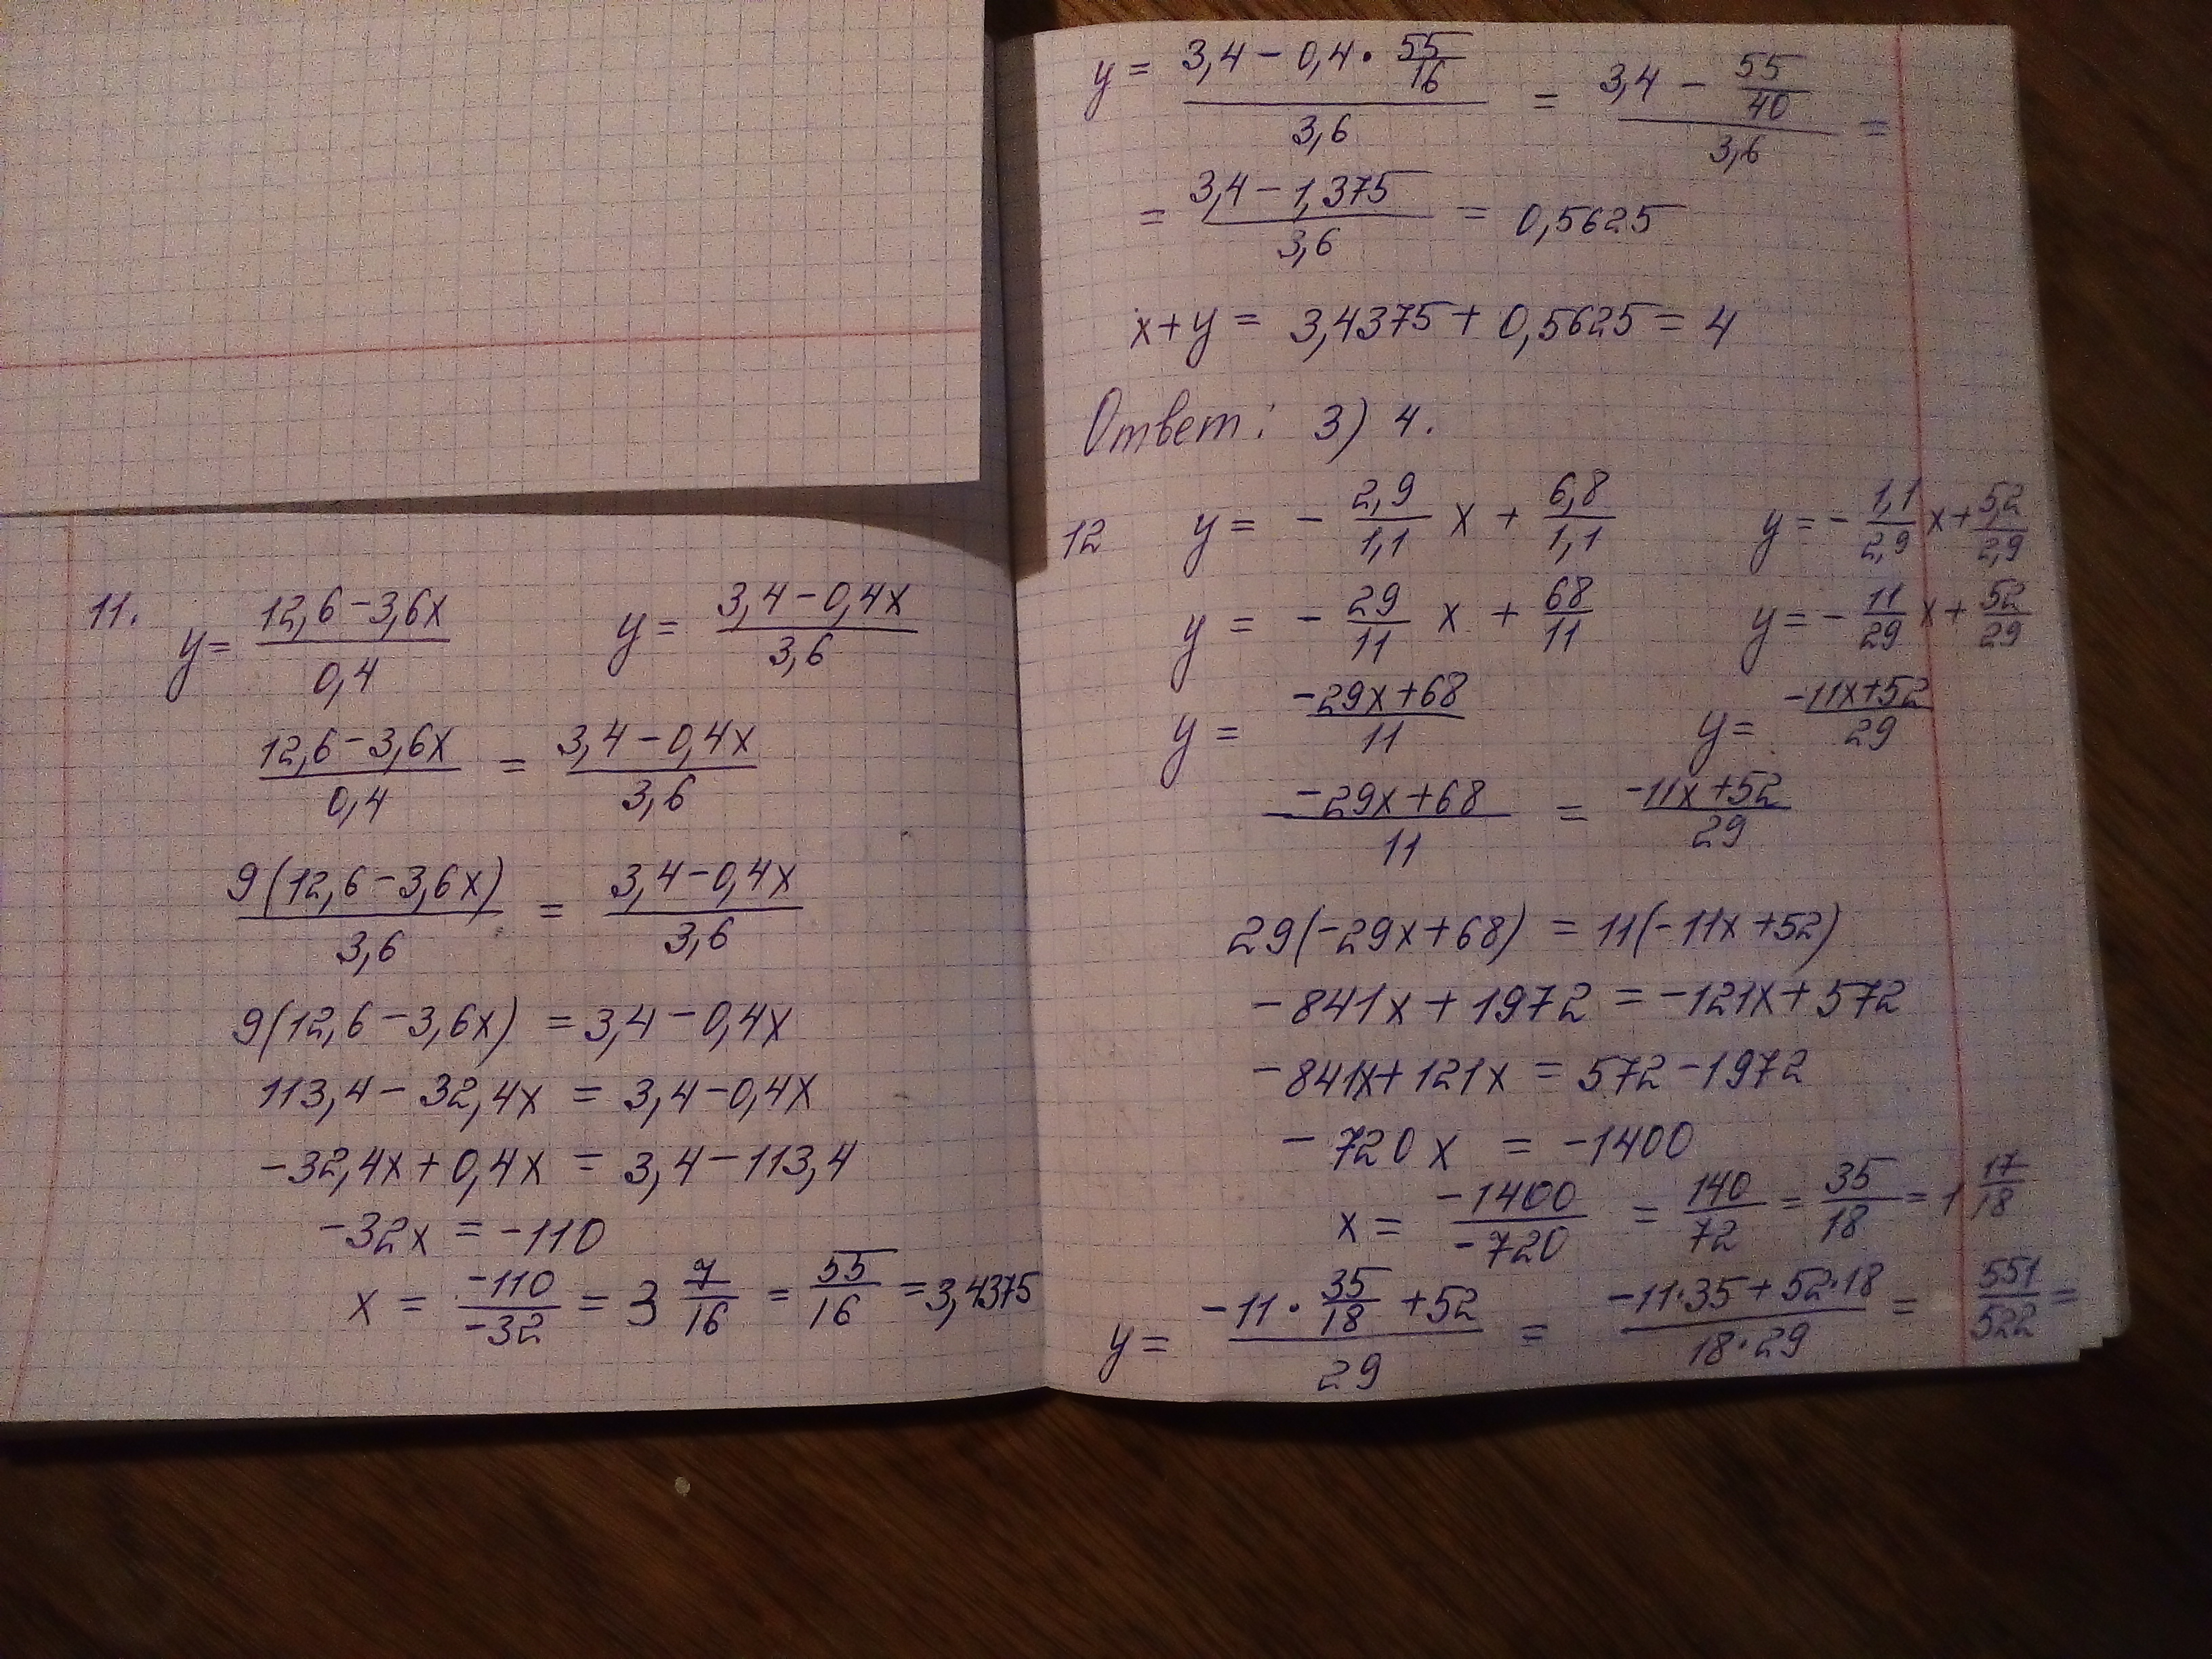 11. y = (12,6 − 3,6x)/0,4    y = (3,4 − 0,4x)/3,6
(12,6 − 3,6x)/0,4 = (3,4 − 0,4x)/3,6
9(12,6 − 3,6x)/3,6 = (3,4 − 0,4x)/3,6
9(12,6 − 3,6x) = 3,4 − 0,4x
113,4 − 32,4x = 3,4 − 0,4x
−32,4x + 0,4x = 3,4 − 113,4
−32x = −110
x = −110/−32 = 3 7/16 = 55/16 = 3,4375
y = (3,4 − 0,4 · 55/16)/3,6 = (3,4 − 55/40)/3,6 =
= (3,4 − 1,375)/3,6 = 0,5625
x + y = 3,4375 + 0,5625 = 4
Ответ: 3) 4.
12 y = − 2,9/1,1 x + 6,8/1,1    y = − 1,1/2,9 x + 5,2/2,9
y = − 29/11 x + 68/11    y = − 11/29 x + 52/29
y = (−29x + 68)/11    y = (−11x + 52)/29
(−29x + 68)/11 = (−11x + 52)/29
29(−29x + 68) = 11(−11x + 52)
−841x + 1972 = −121x + 572
−841x + 121x = 572 − 1972
−720x = −1400
x = −1400/−720 = 140/72 = 35/18 = 1 17/18
y = (−11 · 35/18 + 52)/29 = (−11·35 + 52·18)/(18·29) = 551/522 =